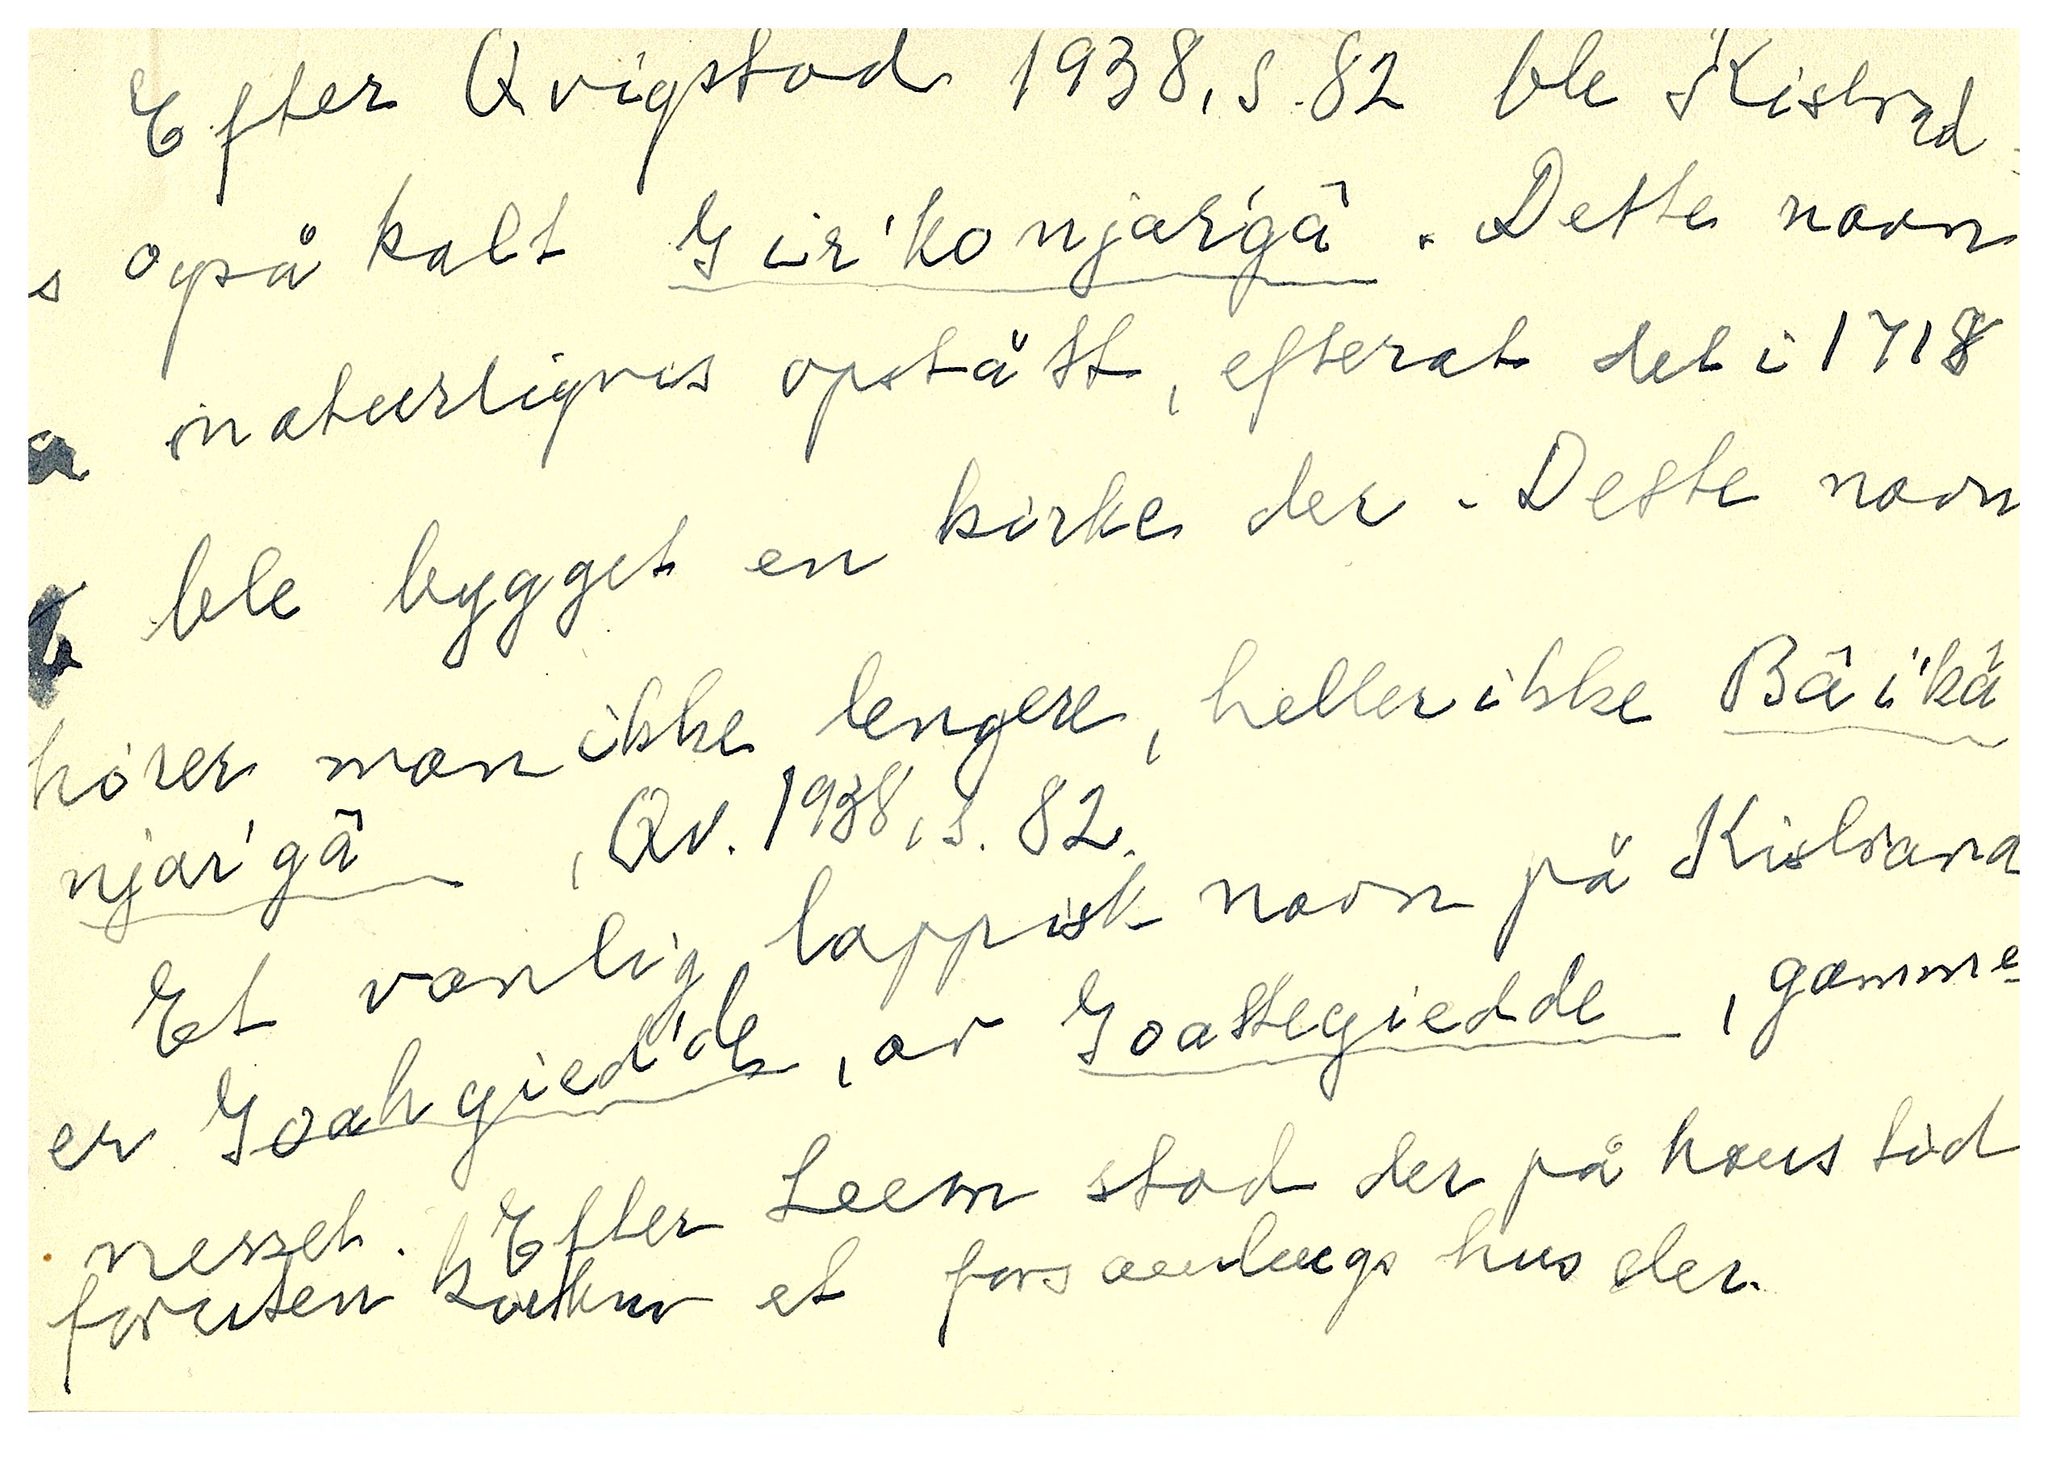 Efter Qvigstad 1938, s. 82 ble Kistrand
s også kalt Gir'konjar'gâ. Dette navn
a naturligvis opstått, efterat det i 1718
b ble bygget en kirke der. Dette navn
hører man ikke lengere, heller ikke Bâi'kâ
njar'gâ, Qv. 1938, s. 82.
Et vanlig lappisk navn på Kistrand
er Goahgied'de, av Goattegiedde, gamme
nesset. Efter Leem stod der på hans tid
foruten kirken et forsamlingshus der.